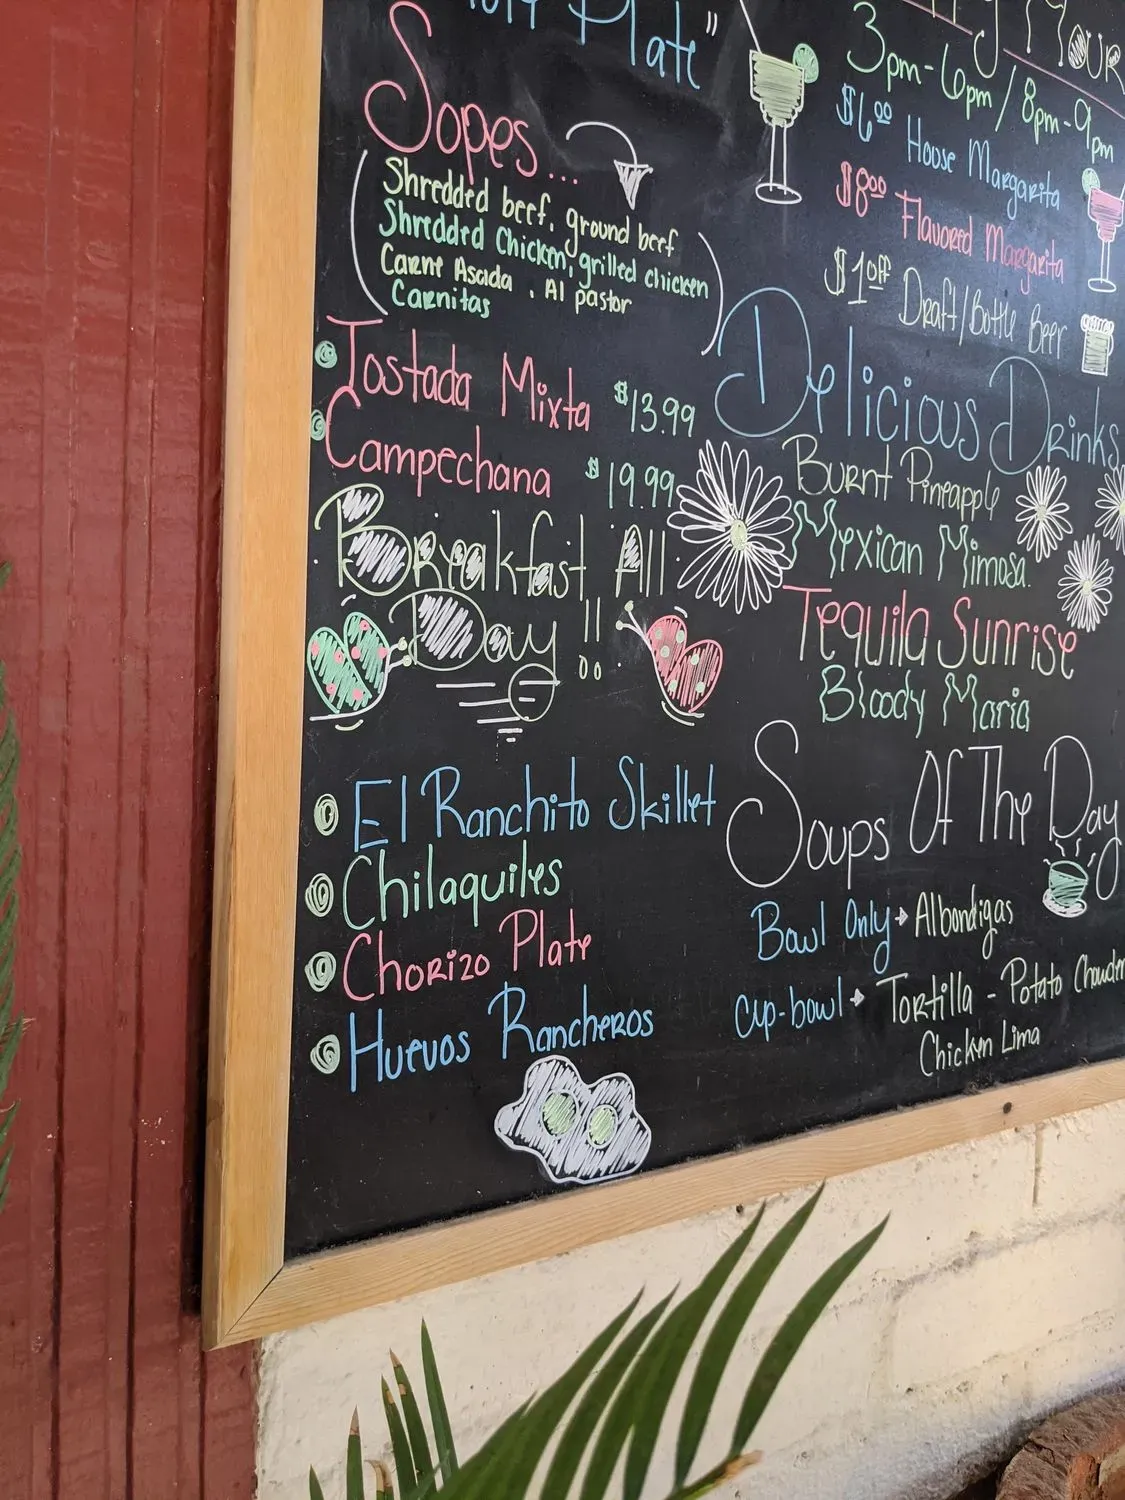 Plate"
Sopes...
Shredded beef, ground beef
Shredded Chicken, grilled chicken
Carne Asada, Al pastor
Carnitas
Tostada Mixta $13.99
Campechana $19.99
Breakfast All
Day!!
El Ranchito Skillet
Chilaquiles
Chorizo Plate
Huevos Rancheros
Hour
3pm-6pm/8pm-9pm
$6.00 House Margarita
$8.00 Flavored Margarita
$1 off Draft/Bottle Beer
Delicious Drinks
Burnt Pineapple
Mexican Mimosa
Tequila Sunrise
Bloody Maria
Soups Of The Day
Bowl Only → Albondigas
Cup-bowl → Tortilla - Potato Chowder
Chicken Lima